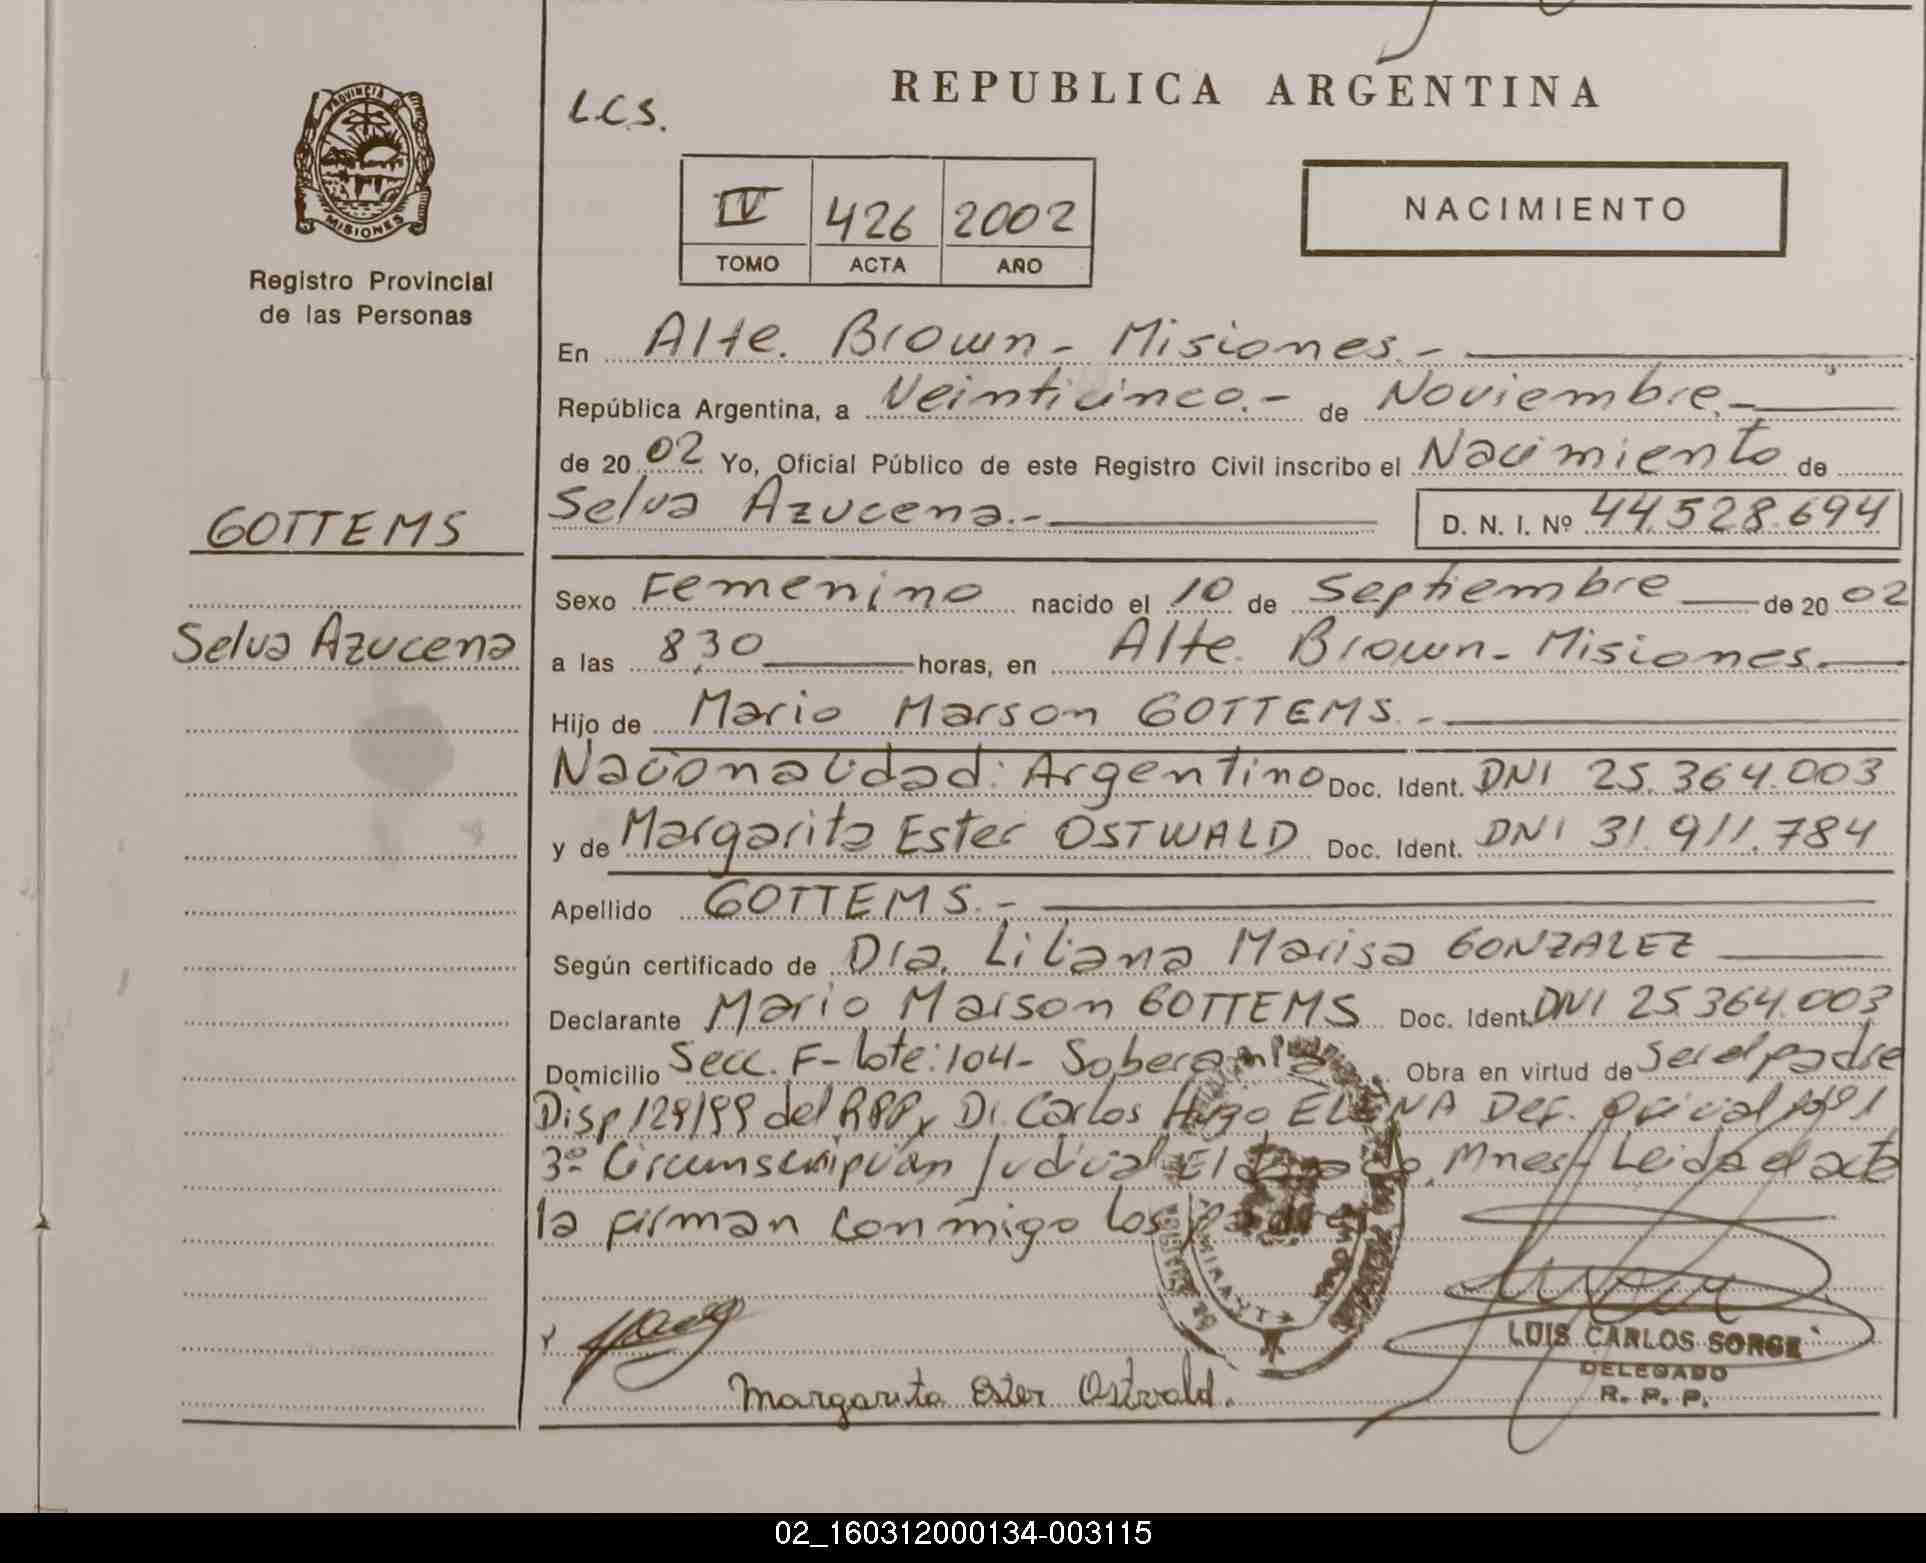 REPUBLICA ARGENTINA
L.C.S.
PROVINCIA DE
MISIONES
Registro Provincial
de las Personas
IV 426 2002
TOMO ACTA AÑO
NACIMIENTO
En Alte. Brown - Misiones.-
República Argentina, a Veinticinco.- de Noviembre.-
de 20 02 Yo, Oficial Público de este Registro Civil inscribo el Nacimiento de
Selva Azucena.- D. N. I. Nº 44.528.694
GOTTEMS
Selva Azucena
Sexo Femenino nacido el 10 de Septiembre de 20 02
a las 8,30 horas, en Alte. Brown - Misiones.
Hijo de Mario Marson GOTTEMS.-
Nacionalidad: Argentino Doc. Ident. DNI 25.364.003
y de Margarita Ester OSTWALD Doc. Ident. DNI 31.911.784
Apellido GOTTEMS.-
Según certificado de Dra. Liliana Marisa GONZALEZ
Declarante Mario Marson GOTTEMS Doc. Ident. DNI 25.364.003
Domicilio Secc. F - lote: 104 - Soberania Obra en virtud de Ser el padre
Disp 129/99 del RPP y Dr. Carlos Hugo Def. Oficial Nº 1
3º Circunscripción Judicial Eldorado, Mnes.- Leida el acta
la firman conmigo los padres
Margarita Ester Ostwald.
LUIS CARLOS SORGE
DELEGADO
R. P. P.
02_160312000134-003115